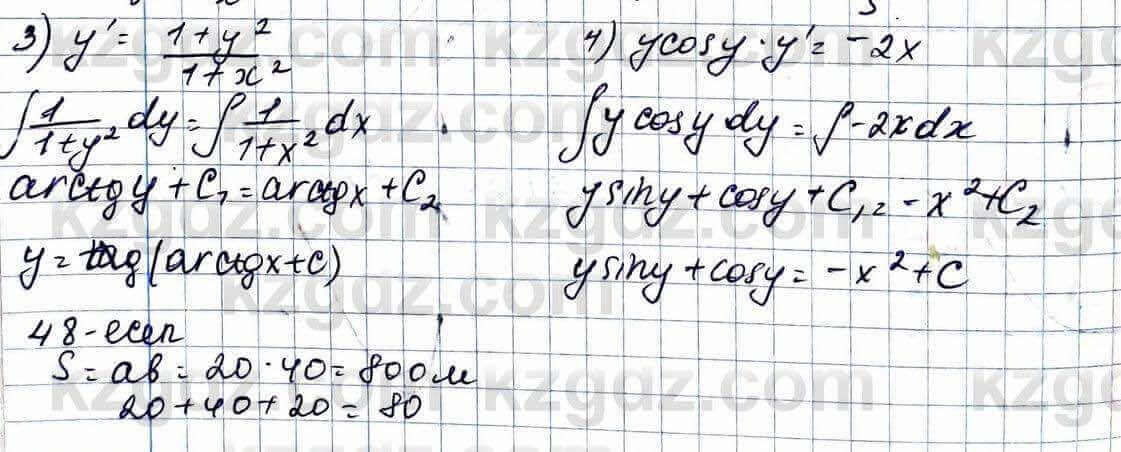 3) y' = (1+y²)/(1+x²)
∫ 1/(1+y²) dy = ∫ 1/(1+x²) dx
arctgy + C₁ = arctgx + C₂
y = tg(arctgx+c)
4) ycosy · y' = -2x
∫ y cosy dy = ∫ -2x dx
ysiny + cosy + C₁ = -x² + C₂
ysiny + cosy = -x² + C
48-есеп
S = ab = 20 · 40 = 800м
20 + 40 + 20 = 80
kzgdz.com